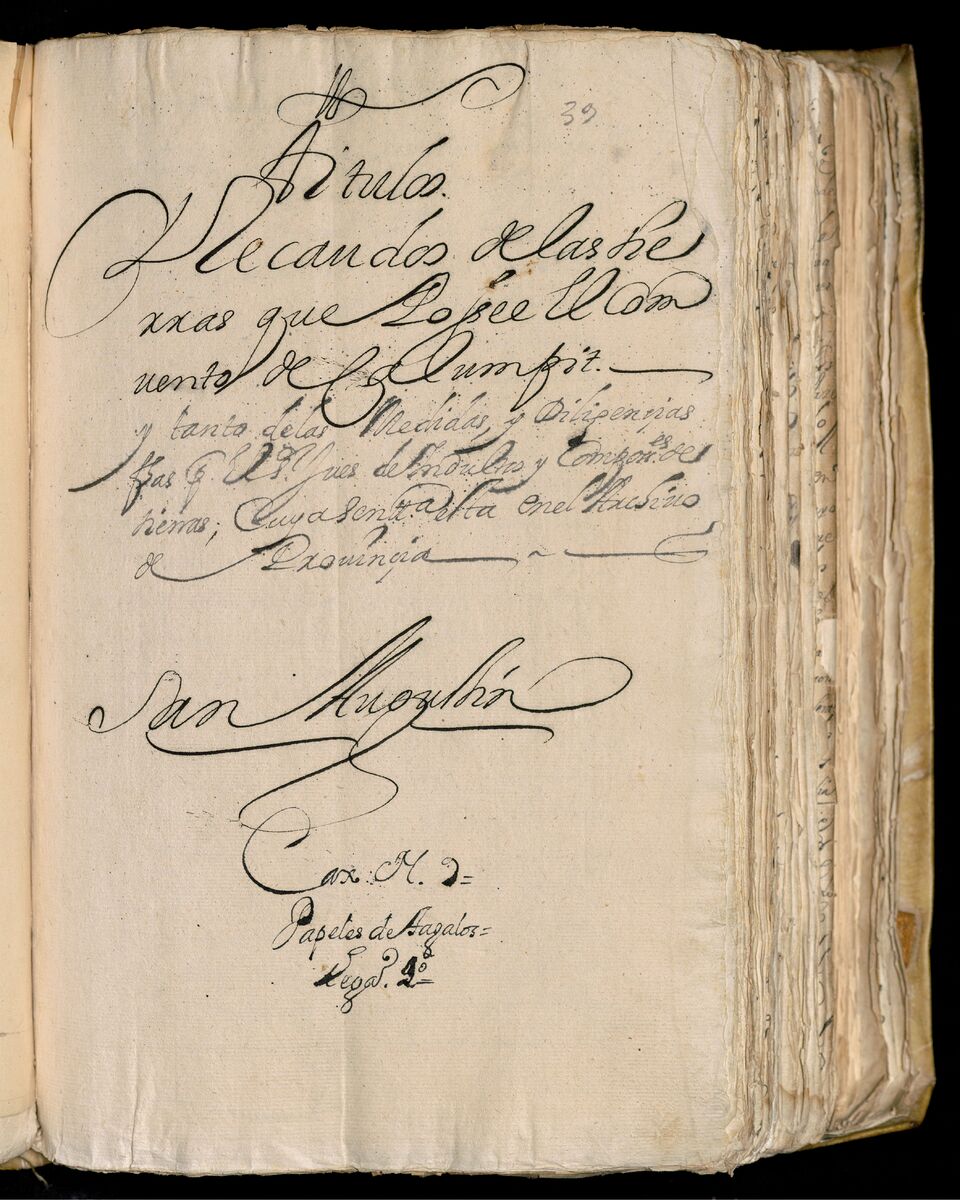 39
Titulos.
Y Recaudos de las tie
rras que Possee El Com
uento de Calumpit.
y tanto de las Medidas, y Diligençias
fhas pr. El Sr. Jues de Indultos y Compones. de
tierras; Cuya Senta. esta en el Archiuo
de Prouinçia
San Augusthin
Cax: N. 2=
Papeles de
Lega. 2º=